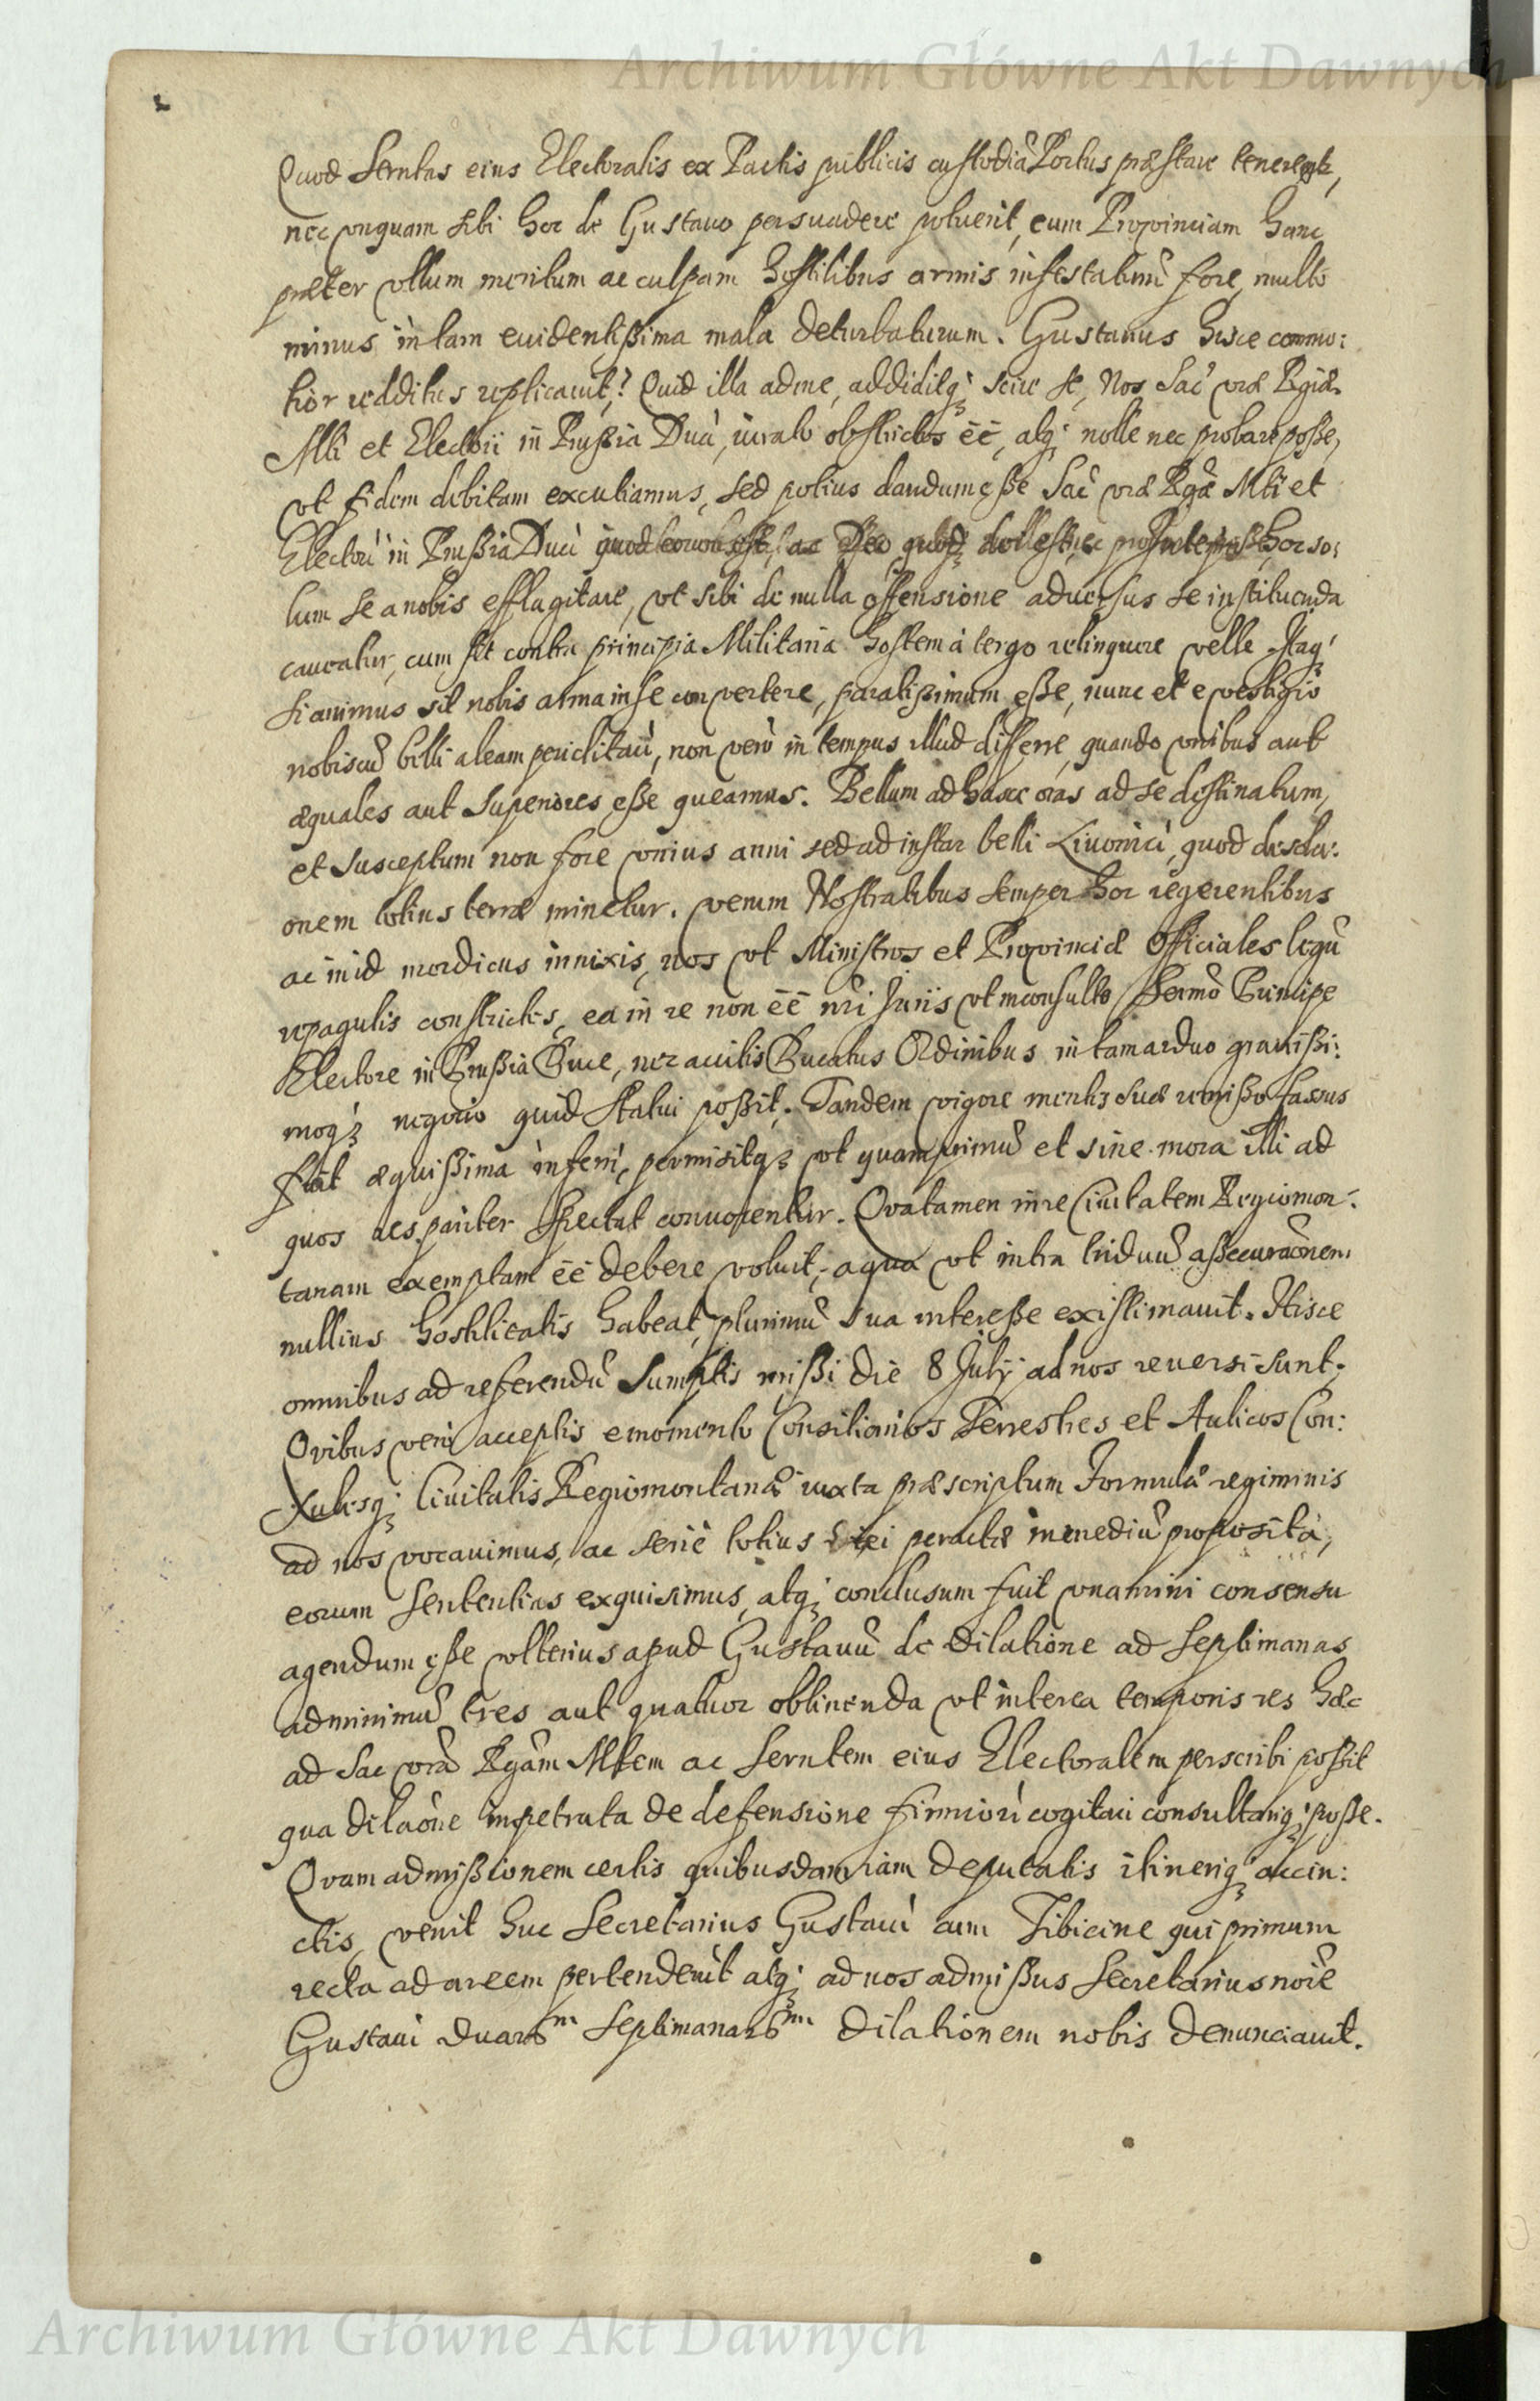 Archiwum Główne Akt Dawnych
Quod Serntas eius Electoralis ex Pactis publicis custodiâ Portus præstare
nec vnquam sibi hoc de Gustavo persuadere potuerit, eum Provinciam hanc
præter vllum meritum ac culpam hostilibus armis infestaturũ fore, multo
minus in tam evidentißima mala deturbaturum. Gustavus hisce commo:
tior redditus replicavit? Quid illa ad me, addiditq; scire se, Nos Sac vræ Rgiæ
Mti et Electori in Prußia Duci, iurato obstrictos ēē, atq; nolle nec probare poße,
vt fidem debitam excutiamus, sed potius dandum eße Sac vræ Rgæ Mti et
Electori in Prußia Duci quod Hoc so:
lum se a nobis efflagitare, vt sibi de nulla offensione adversus se instituenda
caveatur, cum sit contra principia Militaria hostem à tergo relinquere velle. Itaq;
si animus sit nobis arma in se convertere, paratißimum eße, nunc et e vestigio
nobiscũ belli aleam periclitari, non vero in tempus illud differre, quando viribus aut
æquales aut superiores eße queamus. Bellum ad hasce oras ad se destinatum,
et susceptum non fore vnius anni sed ad instar belli Livonici, quod
onem totius terræ minetur. verum Nostratibus semper hoc regerentibus
ac in id mordicus innixis, nos vt Ministros et Provinciæ Officiales legũ
repagulis constrictos, ea in re non ēē nri Juris vt inconsulto Sermo Principe
Electore in Prußia Duce, nec accitis Ducatus Ordinibus in tam arduo gravißi:
moq; negocio quid statui poßit. Tandem vigore mentis suæ remißo fassus
fuit æquißima inferri, permisitq; vt quamprimũ et sine mora illi ad
quos res pariter spectat convocentur. Qua tamen in re Civitatem Regiomon:
tanam exemptam ēē debere voluit, a qua vt intra triduũ aßecuraõnem
nullius hostilitatis habeat, plurimũ sua intereße existimavit. Hisce
omnibus ad referendũ sumptis mißi die 8 Julij ad nos reversi sunt.
Quibus vero acceptis e momento Consiliarios Terrestres et Aulicos Con:
sulesq; Civitatis Regiomontanæ iuxta præscriptum Formulæ regiminis
ad nos vocavimus, ac serie totius rei peractæ in mediũ proposita,
eorum sententias exquisimus, atq; conclusum fuit vnanimi consensu
agendum eße vlterius apud Gustavũ de dilatione ad septimanas
ad minimũ tres aut quatuor obtinenda vt interea temporis res hæc
ad Sac vrã Rgãm Mtem ac Serntem eius Electoralem perscribi poßit
qua dilaõne impetrata de defensione firmiori cogitari consultariq; poße.
Quam admißionem certis quibusdam iam deputatis itineriq; accin:
ctis, venit huc Secretarius Gustavi cum Tibicine qui primum
recta ad arcem pertenderit atq; ad nos admißus Secretarius noīe
Gustavi duarum septimanarum dilationem nobis denunciavit.
Archiwum Główne Akt Dawnych